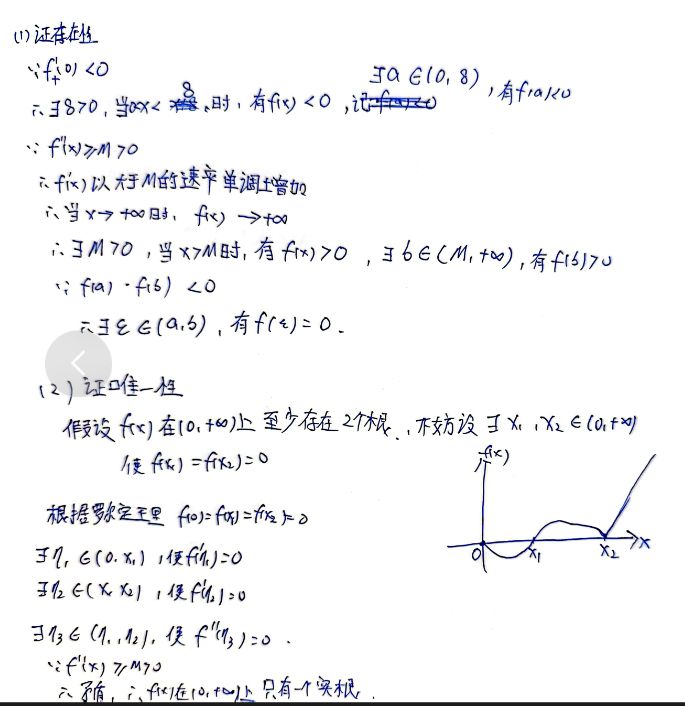 (1) 证存在性
∵ f₊'(0) < 0
∴ ∃δ>0, 当0<x<δ时, 有f(x)<0, 记 ∃a∈(0, δ), 有f(a)<0
∵ f''(x) ≥ M > 0
∴ f'(x) 以大于M的速率单调增加
∴ 当x→+∞时, f(x)→+∞
∴ ∃M>0, 当x>M时, 有f(x)>0, ∃b∈(M, +∞), 有f(b)>0
∵ f(a)·f(b) < 0
∴ ∃ξ∈(a,b), 有f(ξ)=0.
(2) 证唯一性
假设f(x)在(0,+∞)上至少存在2个根, 不妨设∃x₁, x₂∈(0,+∞)
使f(x₁)=f(x₂)=0
f(x)
根据罗尔定理 f(0)=f(x₁)=f(x₂)=0
∃η₁∈(0,x₁), 使f'(η₁)=0
0 x₁ x₂ x
∃η₂∈(x₁,x₂), 使f'(η₂)=0
∃η₃∈(η₁,η₂), 使f''(η₃)=0.
∵ f''(x) ≥ M>0
∴ 矛盾, ∴ f(x)在(0,+∞)上只有一个实根.